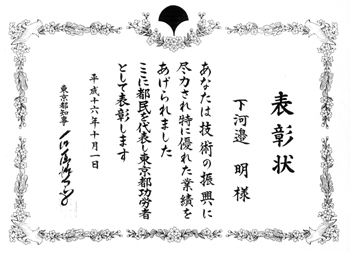 表彰状
下河邉 明 様
あなたは技術の振興に
尽力され特に優れた業績を
あげられました
ここに都民を代表し東京都功労者
として表彰します
平成十六年十月一日
東京都知事